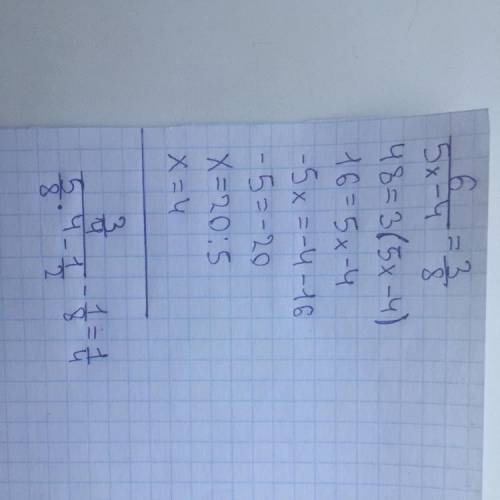 6/(5x-4) = 3/8
48=3(5x-4)
16=5x-4
-5x=-4-16
-5=-20
x=20:5
x=4
(3/4)/(5/8·4-1/2) - 1/8 = 1/4